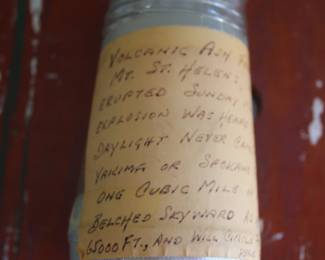 VOLCANIC ASH
MT. ST. HELENS
ERUPTED SUNDAY
EXPLOSION WAS HEARD
DAYLIGHT NEVER
YAKIMA OR SPOKANE
ONE CUBIC MILE
BELCHED SKYWARD
65000 FT., AND WILL CIRCLE